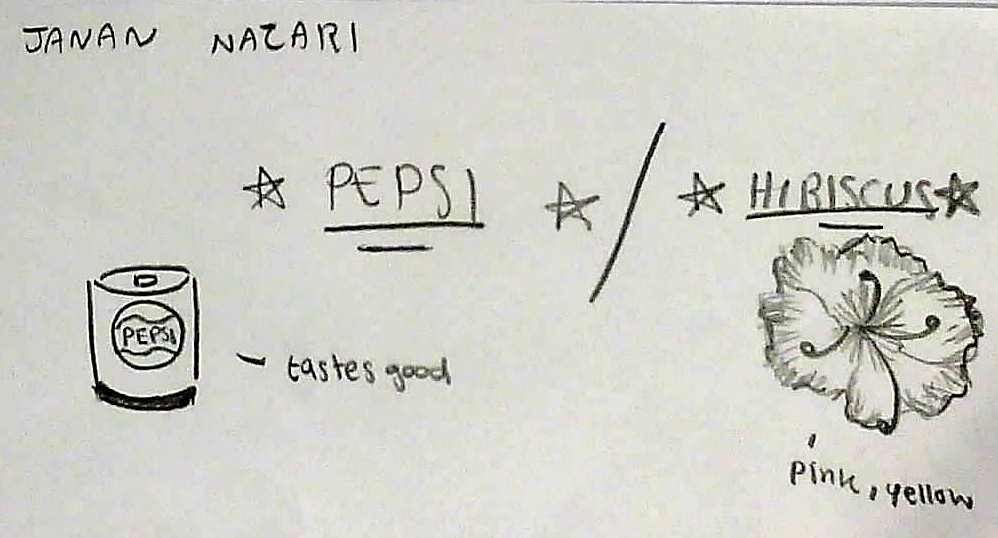 JANAN NAZARI
☆ PEPSI ☆ / ☆ HIBISCUS ☆
PEPSI
- tastes good
pink, yellow